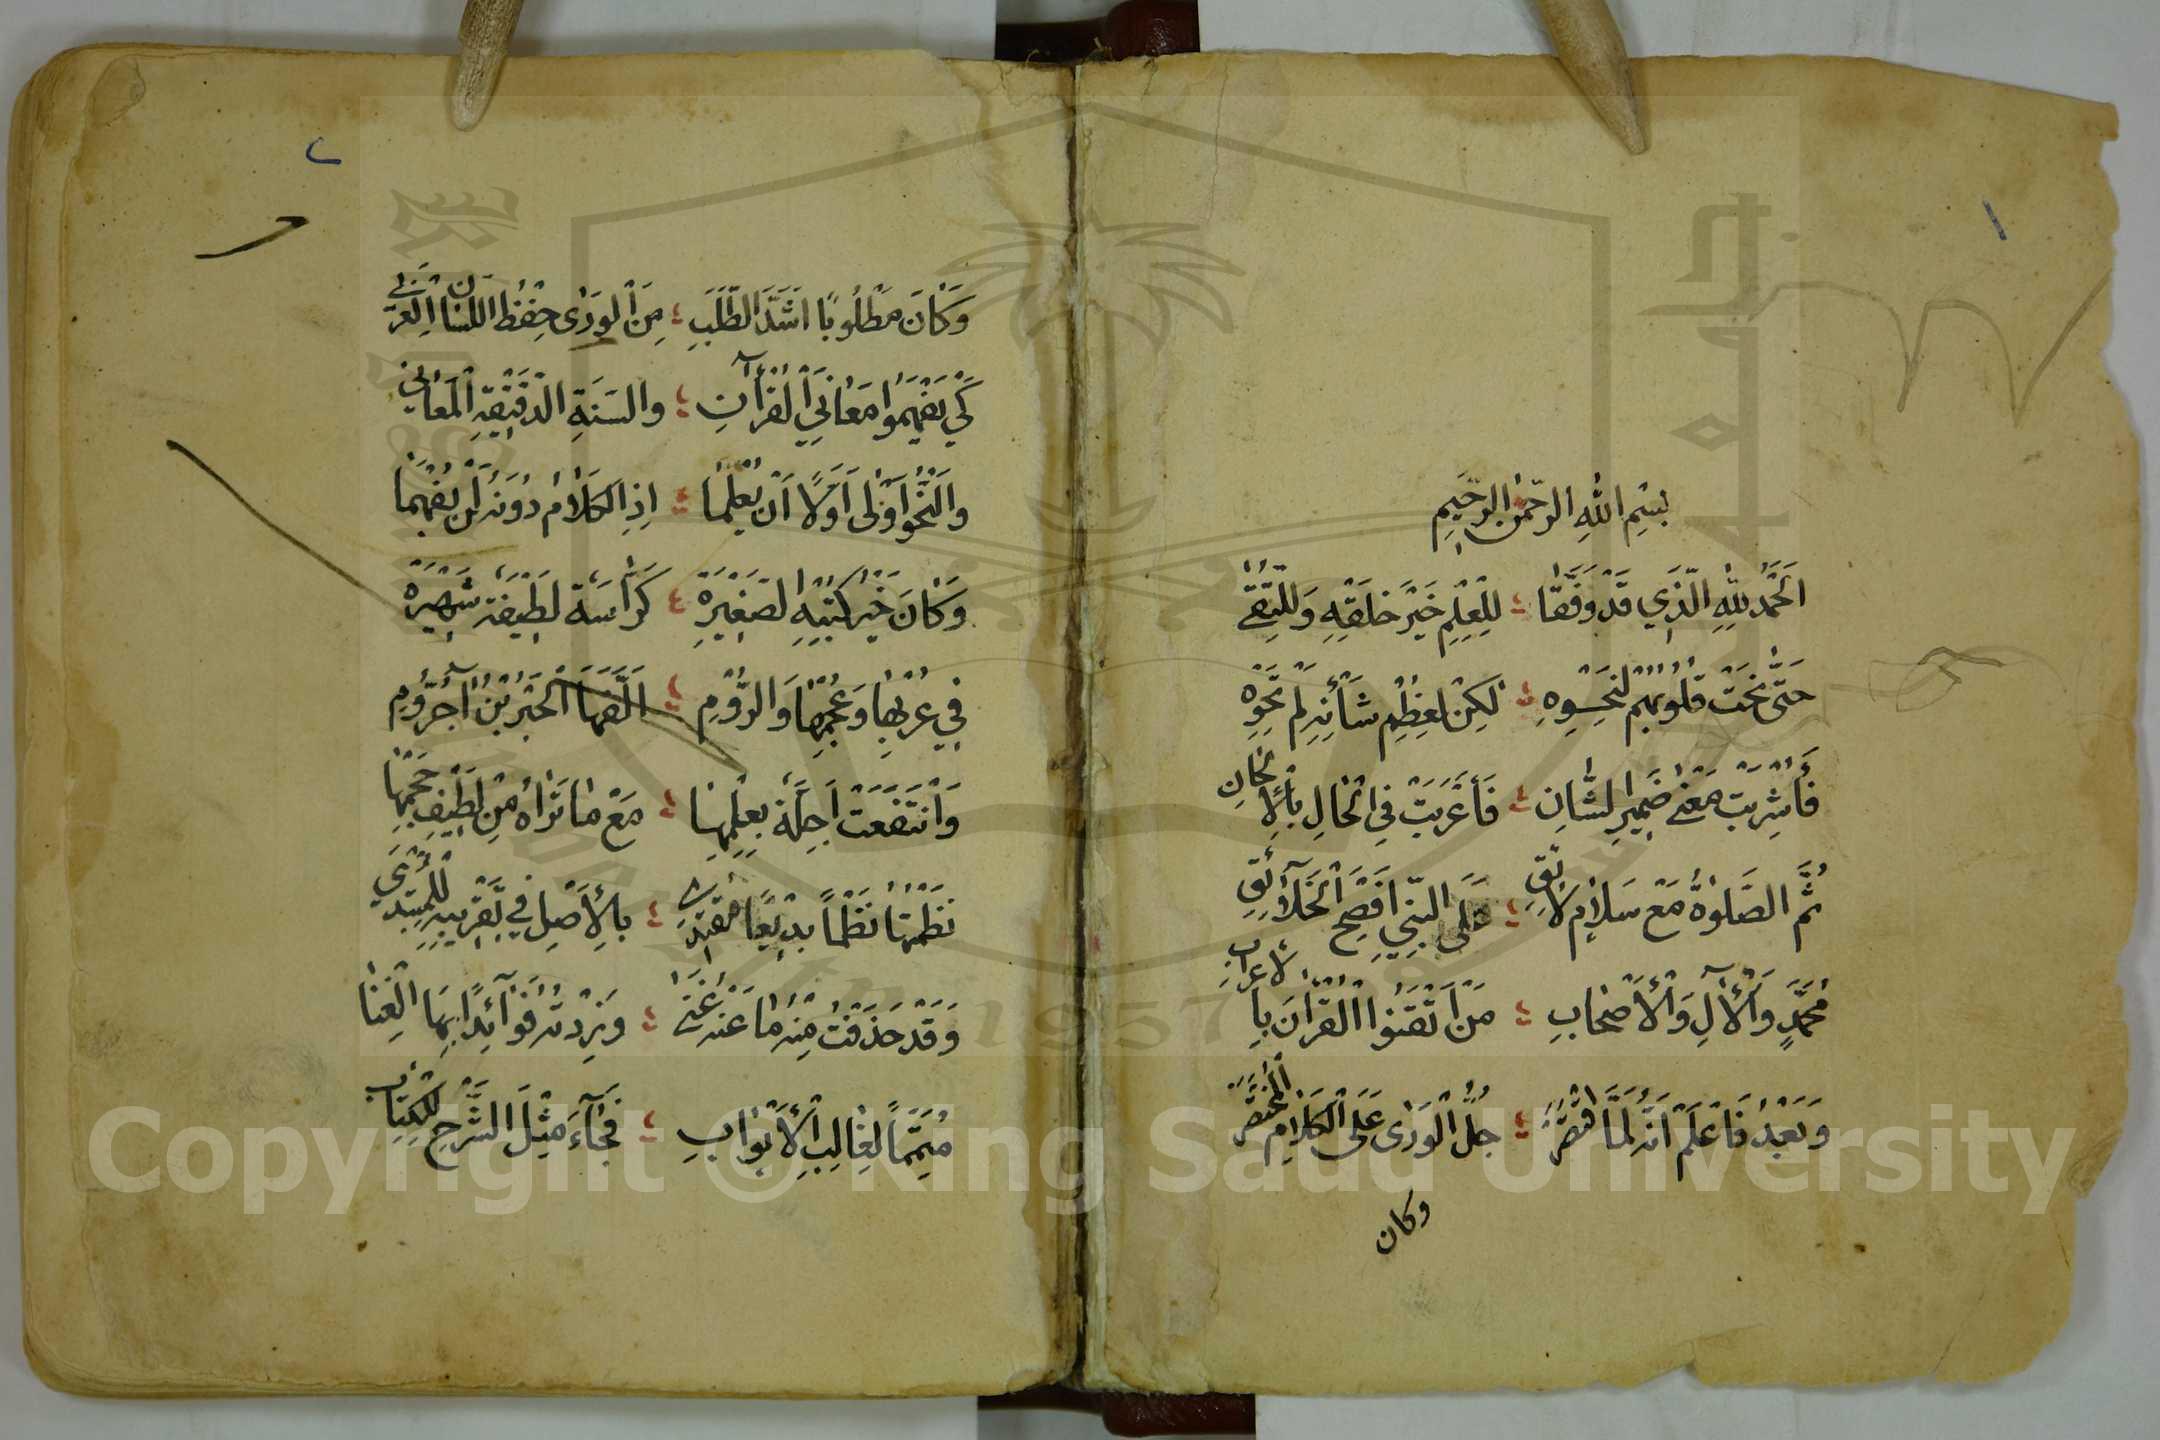 ١
بِسْمِ اللهِ الرَّحْمٰنِ الرَّحِيمِ
اَلْحَمْدُ لِلّٰهِ الَّذِي قَدْ وَفَّقَا ؛ لِلْعِلْمِ خَيْرَ خَلْقِهِ وَلِلتُّقٰى
حَتَّى نَحَتْ قُلُوبُهُمْ لِنَحْوِهِ ؛ لٰكِنْ لِعِظْمِ شَأْنِهِ لَمْ تَحْوِهِ
فَأُشْرِبَتْ مَعْنٰى ضَمِيرِ الشَّانِ ؛ فَأَعْرَبَتْ فِي الْحَالِ بِالْاَلْحَانِ
ثُمَّ الصَّلٰوةُ مَعْ سَلَامٍ لَائِقِ ؛ عَلَى النَّبِيِّ اَفْصَحِ الْخَلَآئِقِ
مُحَمَّدٍ وَالْآلِ وَالْأَصْحَابِ ؛ مَنْ اَتْقَنُوا الْقُرْاٰنَ بِالْاِعْرَابِ
وَبَعْدُ فَاعْلَمْ اَنَّهُ لَمَّا اقْتَصَرْ ؛ جُلُّ الْوَرٰى عَلَى الْكَلَامِ الْمُخْتَصَرْ
وكان
٢
وَكَانَ مَطْلُوبًا اَشَدَّ الطَّلَبِ ؛ مِنَ الْوَرٰى حِفْظُ اللِّسَانِ الْعَرَبِي
كَيْ يَفْهَمُوا مَعَانِيَ الْقُرْآنِ ؛ والسُّنَّةِ الدَّقِيْقَةِ الْمَعَانِي
وَالنَّحْوُ اَوْلٰى اَوَّلًا اَنْ يُعْلَمَا ؛ اِذِ الْكَلَامُ دُونَهُ لَنْ يُفْهَمَا
وَكَانَ خَيْرُ كُتْبِهِ الصَّغِيْرَةِ ؛ كَرَّاسَةً لَطِيْفَةً شَهِيْرَةْ
فِي عُرْبِهَا وَعُجْمِهَا وَالرُّوْمِ ؛ اَلَّفَهَا الْحَبْرُ بْنُ آجُرُّومِ
وَانْتَفَعَتْ اَجِلَّةٌ بِعِلْمِهَا ؛ مَعْ مَا تَرَاهُ مِنْ لَطِيْفِ حَجْمِهَا
نَظَمْتُهَا نَظْمًا بَدِيْعًا مُقْتَدِي ؛ بِالْأَصْلِ فِي تَقْرِيبِهِ لِلْمُبْتَدِي
وَقَدْ حَذَفْتُ مِنْهُ مَا عَنْهُ غِنٰى ؛ وَزِدْتُهُ فَوَآئِدًا بِهَا الْغِنَا
مُتَمِّمًا لِغَالِبِ الْأَبْوَابِ ؛ فَجَآءَ مِثْلَ الشَّرْحِ لِلْكِتَابِ
1957
Copyright © King Saud University